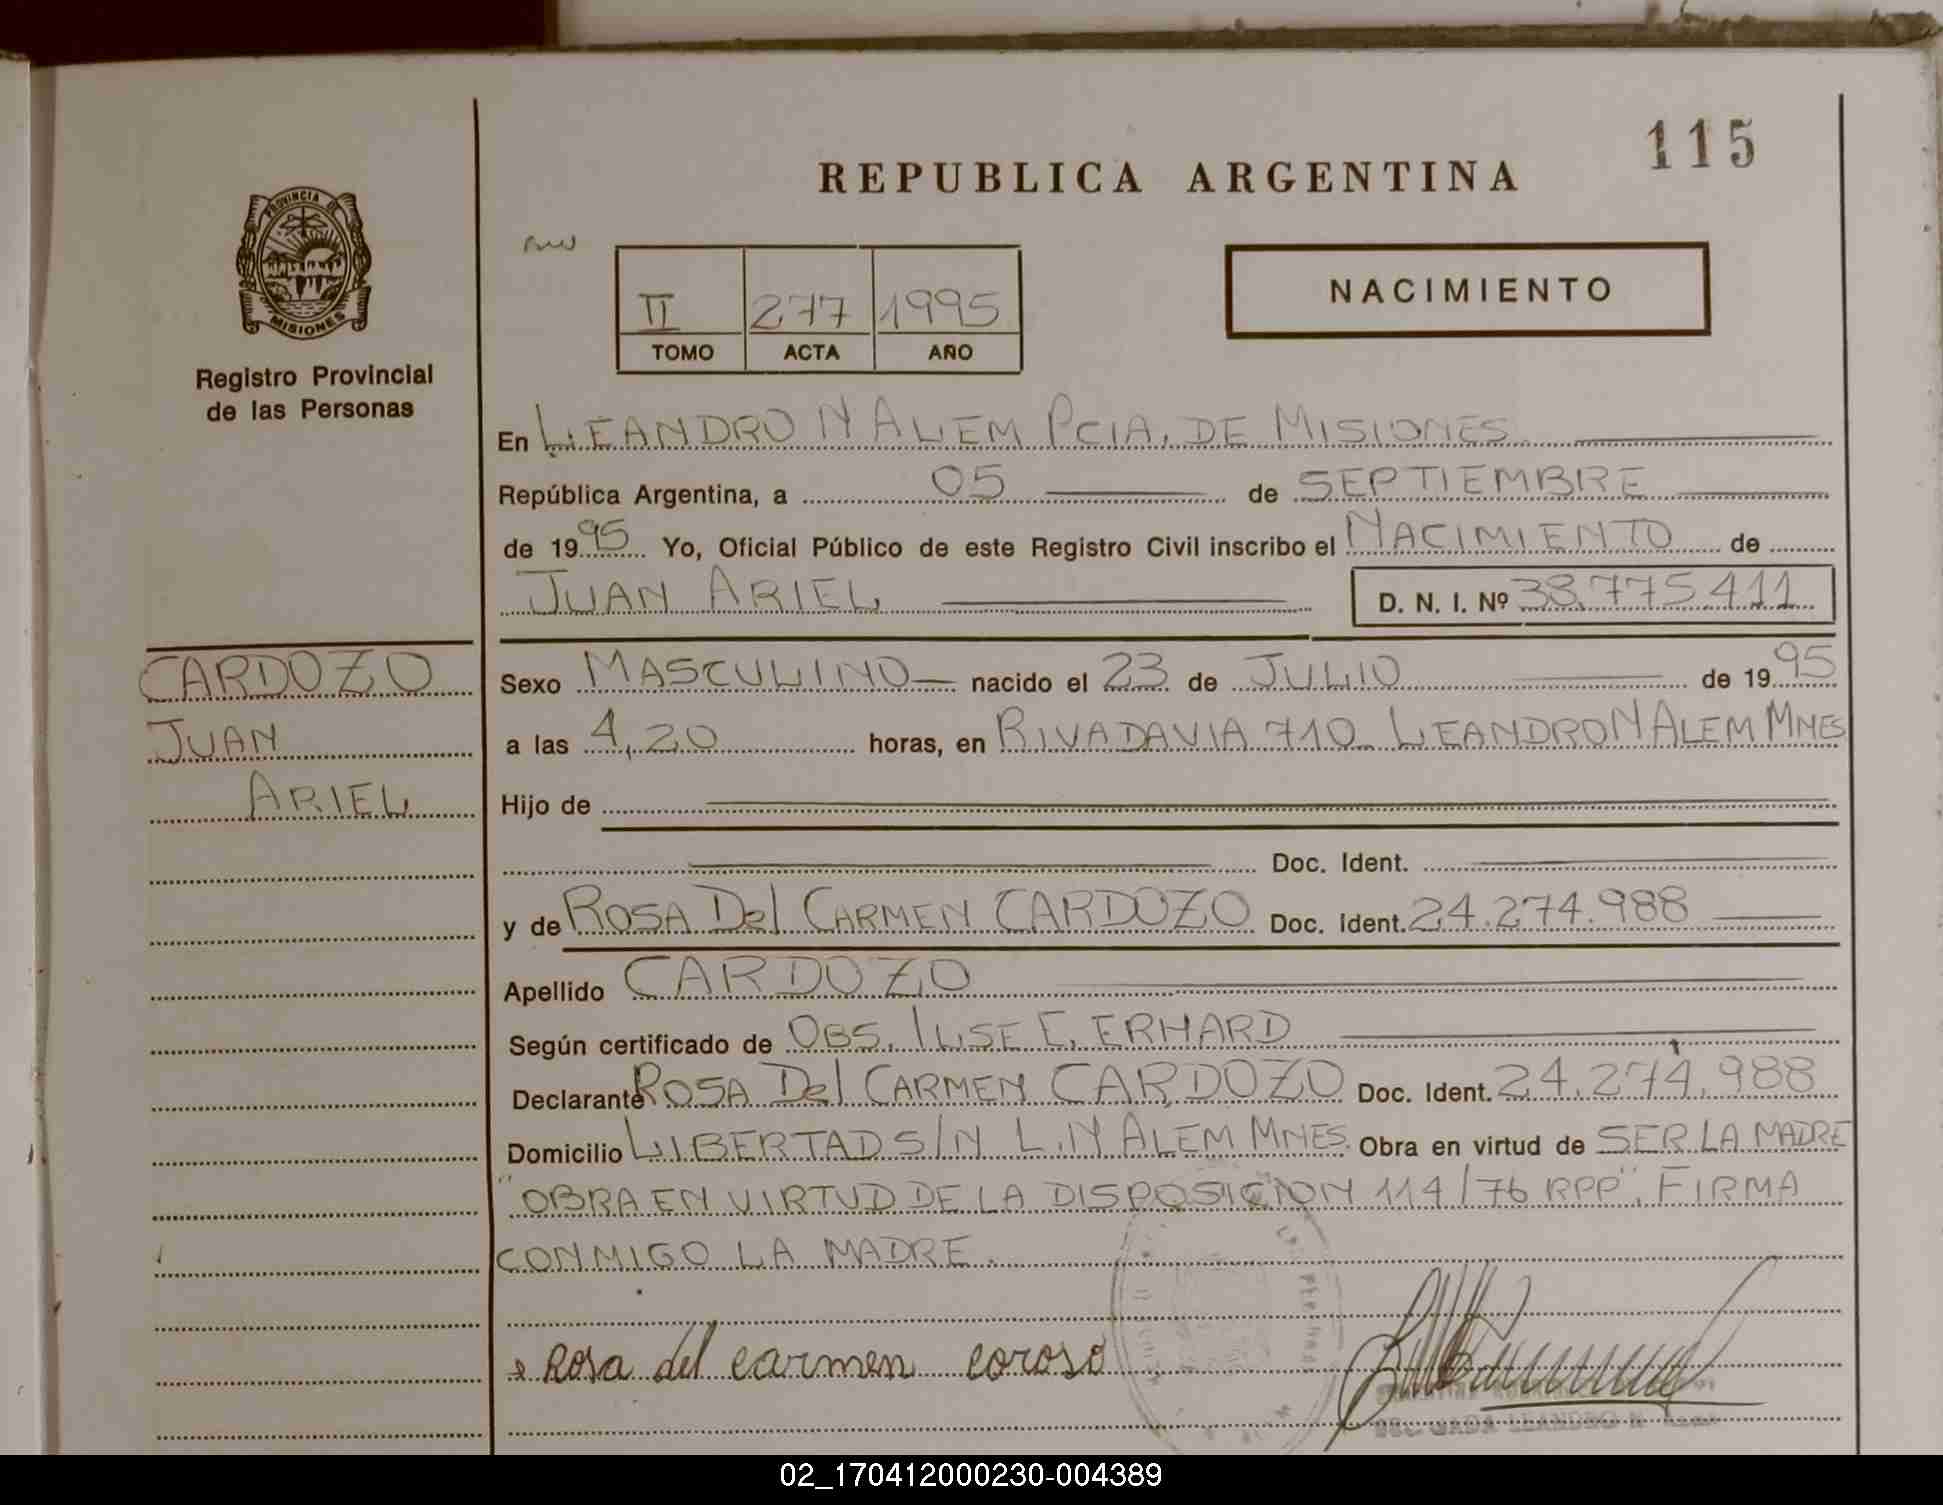 115
REPUBLICA ARGENTINA
PROVINCIA DE
MISIONES
Registro Provincial
de las Personas
NACIMIENTO
II 277 1995
TOMO ACTA AÑO
En LEANDRO N ALEM PCIA. DE MISIONES
República Argentina, a 05 de SEPTIEMBRE
de 1995 Yo, Oficial Público de este Registro Civil inscribo el NACIMIENTO de
JUAN ARIEL D. N. I. Nº 38.775.411
CARDOZO
JUAN
ARIEL
Sexo MASCULINO nacido el 23 de JULIO de 1995
a las 4,20 horas, en RIVADAVIA 710 LEANDRO N ALEM MNES
Hijo de
Doc. Ident.
y de ROSA Del CARMEN CARDOZO Doc. Ident. 24.274.988
Apellido CARDOZO
Según certificado de OBS. ILSE E. ERHARD
Declarante ROSA Del CARMEN CARDOZO Doc. Ident. 24.274.988
Domicilio LIBERTAD S/N L.N ALEM MNES. Obra en virtud de SER LA MADRE
"OBRA EN VIRTUD DE LA DISPOSICION 114/76 RPP". FIRMA
CONMIGO LA MADRE.
Rosa del carmen coroso
LEANDRO N
02_170412000230-004389